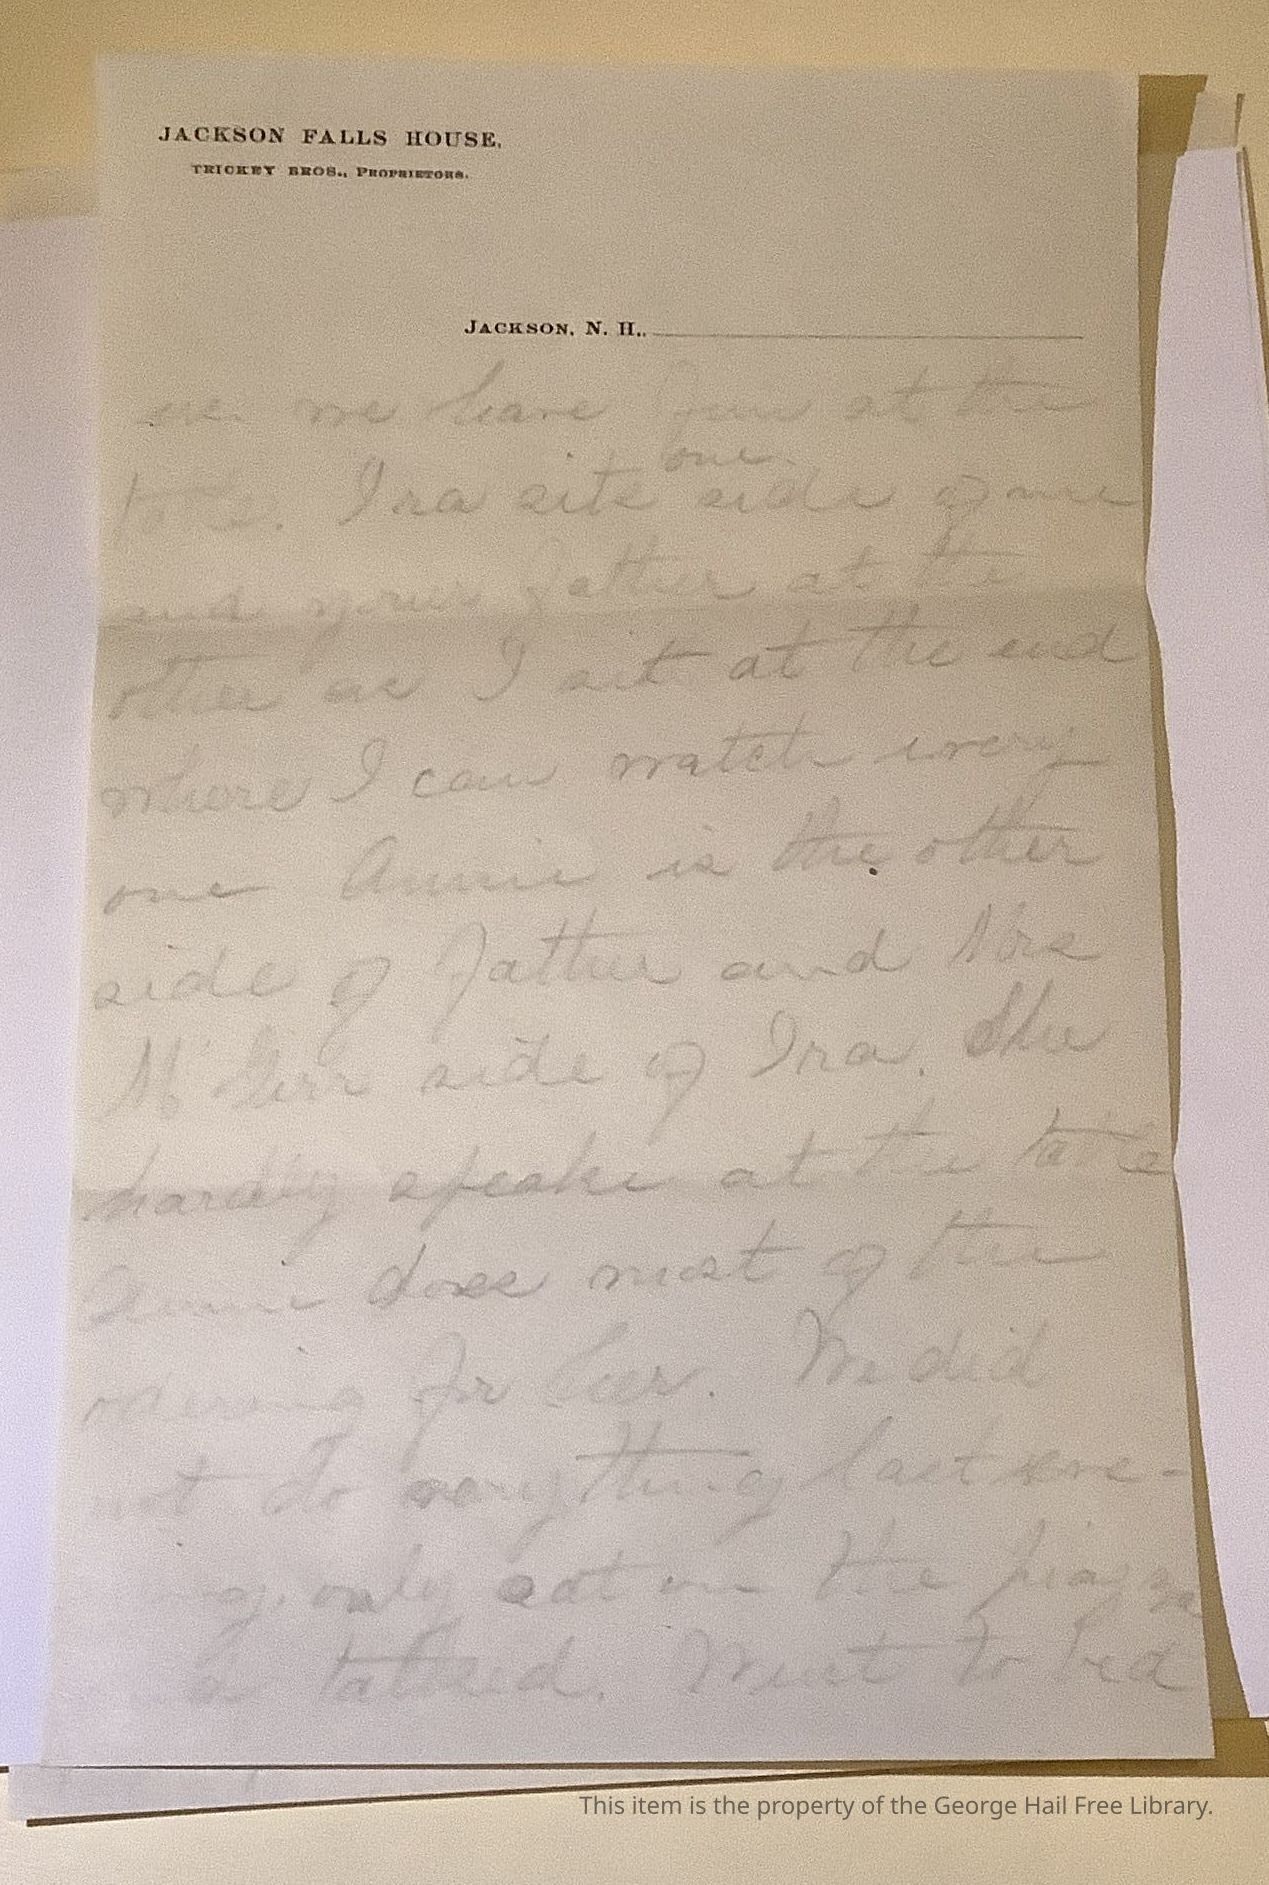 JACKSON FALLS HOUSE,
TRICKEY BROS., PROPRIETORS.
JACKSON, N. H.,
we have fun at the
table. Ira sits one side of me
and your father at the
other as I sit at the end
where I can watch every
one Annie is the other
side of father and Mrs
side of Ira. She
hardly speaks at the table
Annie does most of the
ordering for her. We did
not do anything last eve-
only sat on the piazza
talked. Went to bed
This item is the property of the George Hail Free Library.